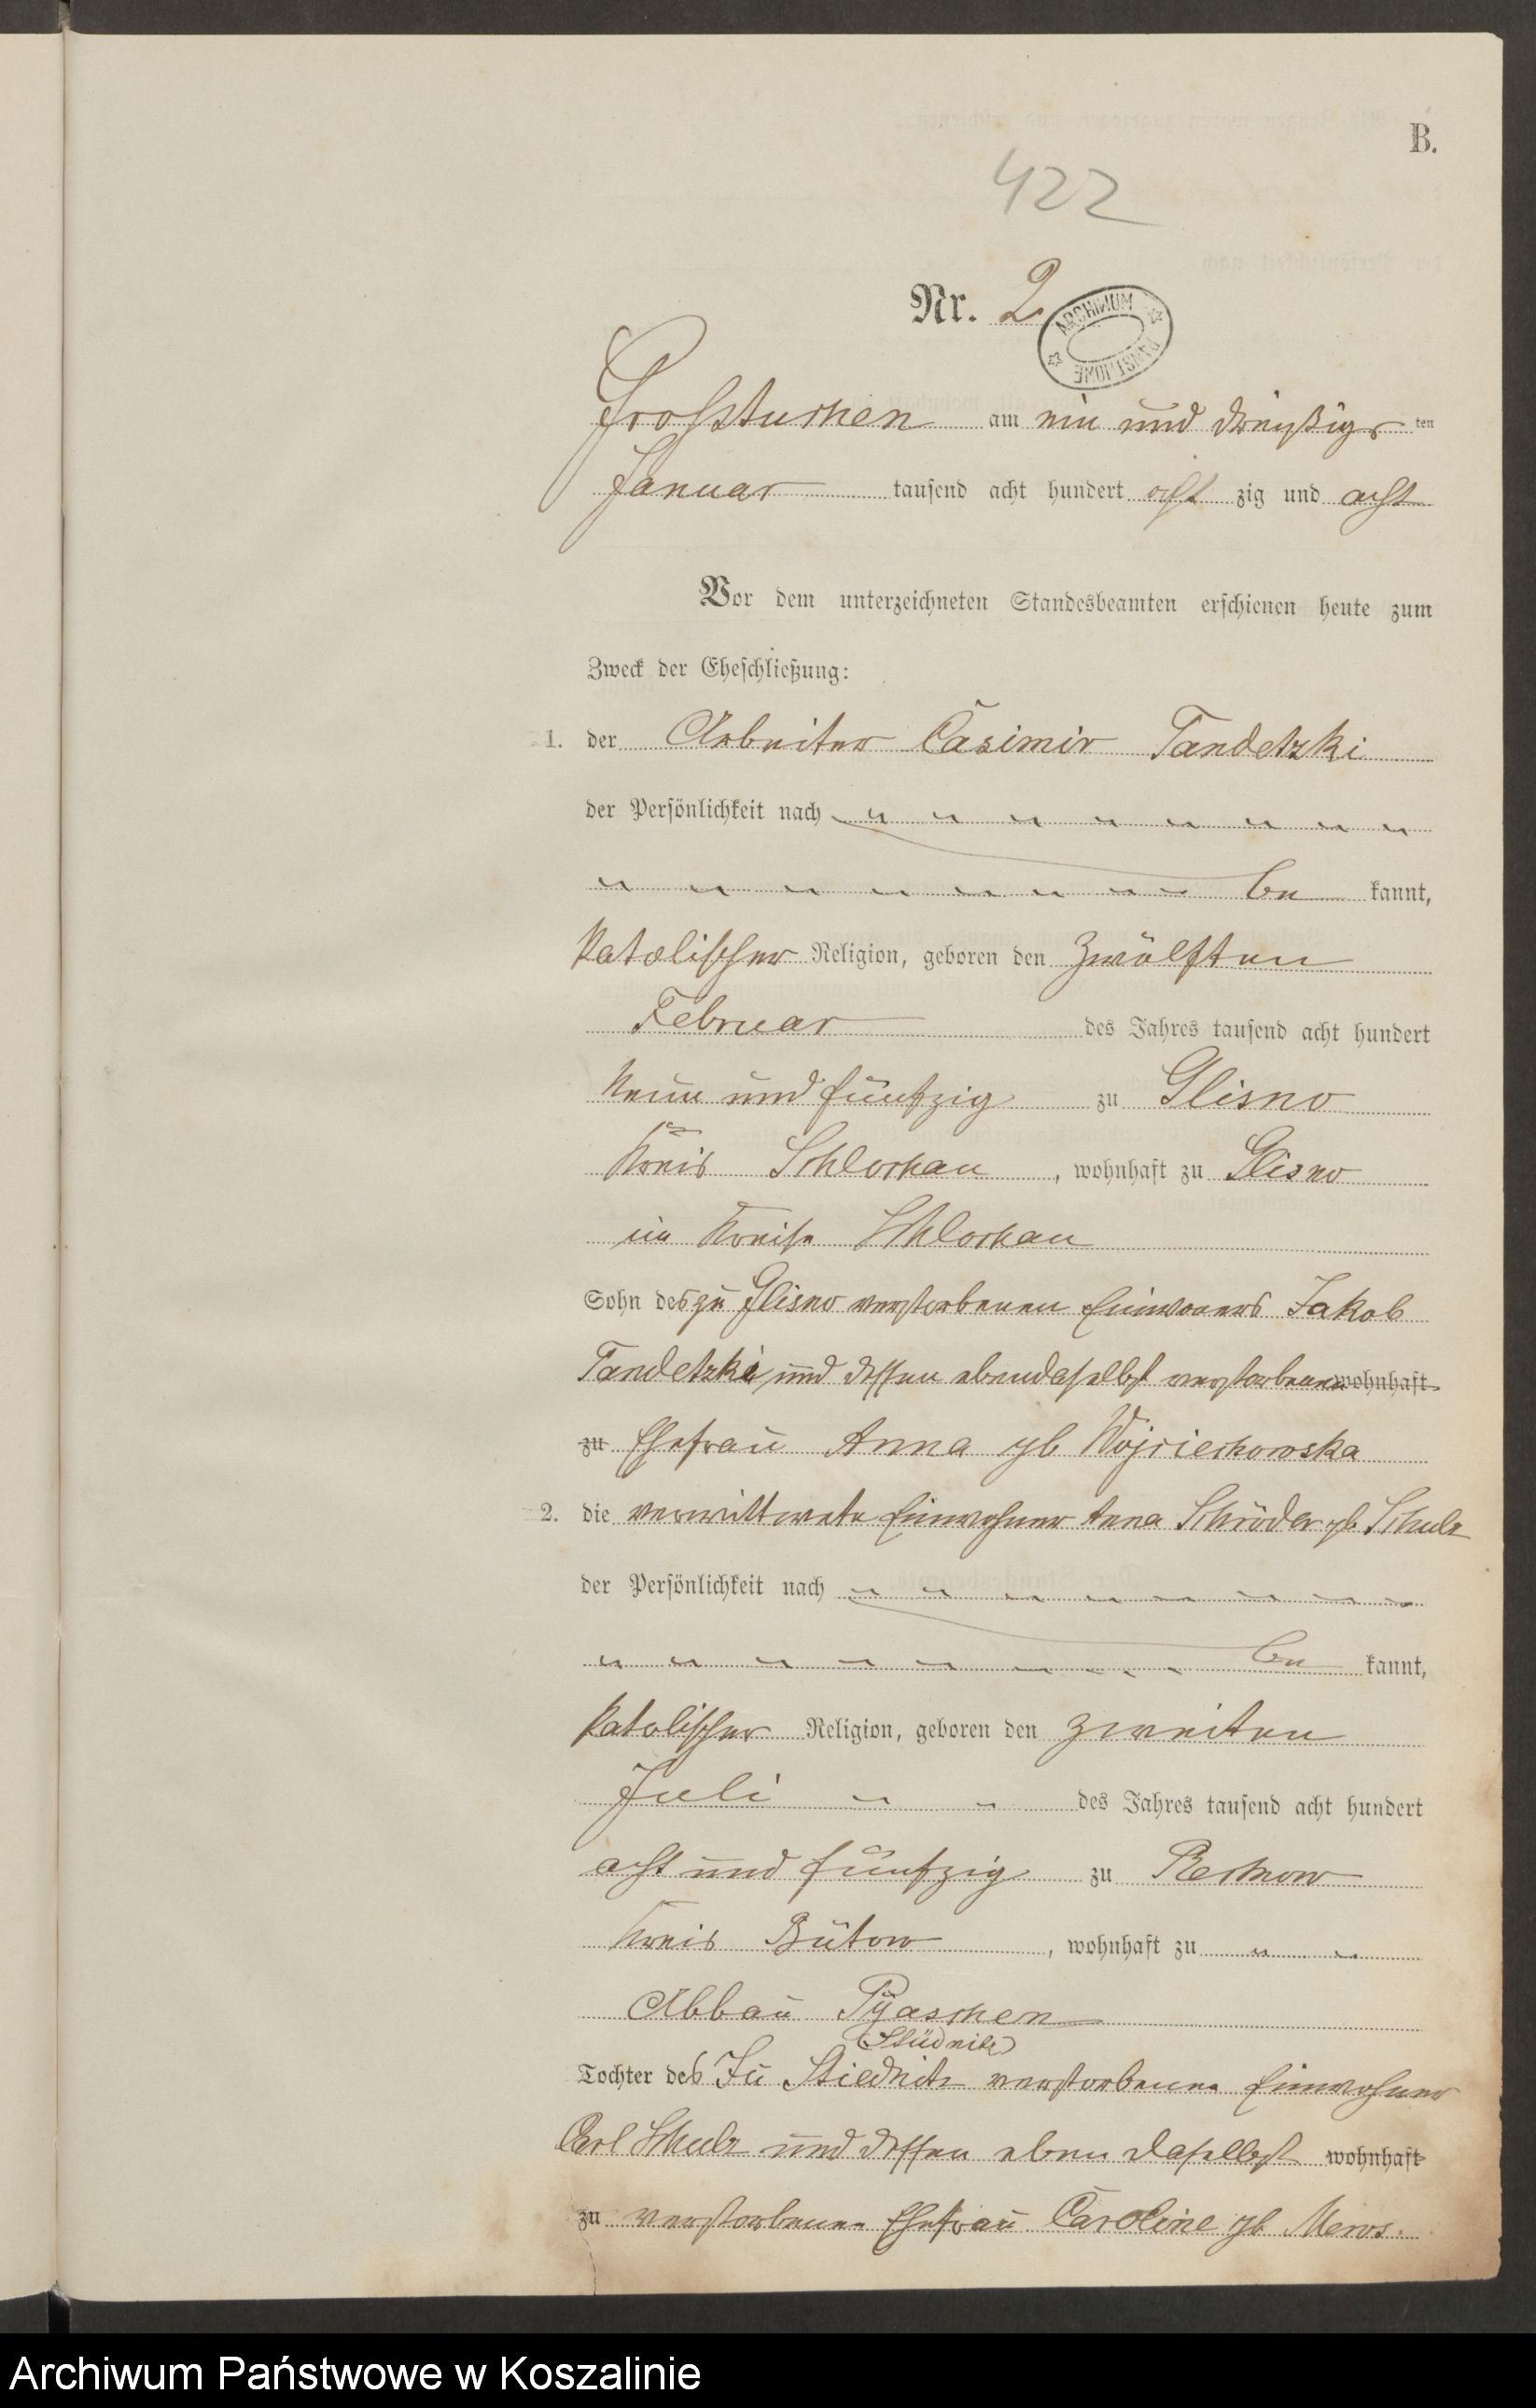 B.
422
Nr. 2
ARCHIWUM PAŃSTWOWE
Großtuchen am ein und dreißigs ten
Januar tausend acht hundert acht zig und acht
Vor dem unterzeichneten Standesbeamten erschienen heute zum
Zweck der Eheschließung:
1. der Arbeiter Casimir Tandetzki
der Persönlichkeit nach
be kannt,
katolischer Religion, geboren den zwölften
Februar des Jahres tausend acht hundert
neun und fünfzig zu Glisno
Kreis Schlochau, wohnhaft zu Glisno
im Kreise Schlochau
Sohn des zu Glisno verstorbenen Einwoners Jakob
Tandetzki und dessen ebendaselbst verstorbenen wohnhaft
zu Ehefrau Anna gb Wojciechowska
2. die verwittwete Einwohner Anna Schröder gb Schulz
der Persönlichkeit nach
be kannt,
katolischer Religion, geboren den zweiten
Juli des Jahres tausend acht hundert
acht und fünfzig zu Reckow
Kreis Bütow, wohnhaft zu
Abbau Pyaschen
(Stüdnitz)
Tochter des zu Stiednitz verstorbenen Einwohner
Carl Schulz und dessen eben daselbst wohnhaft
zu verstorbenen Ehefrau Caroline gb Mews.
Archiwum Państwowe w Koszalinie